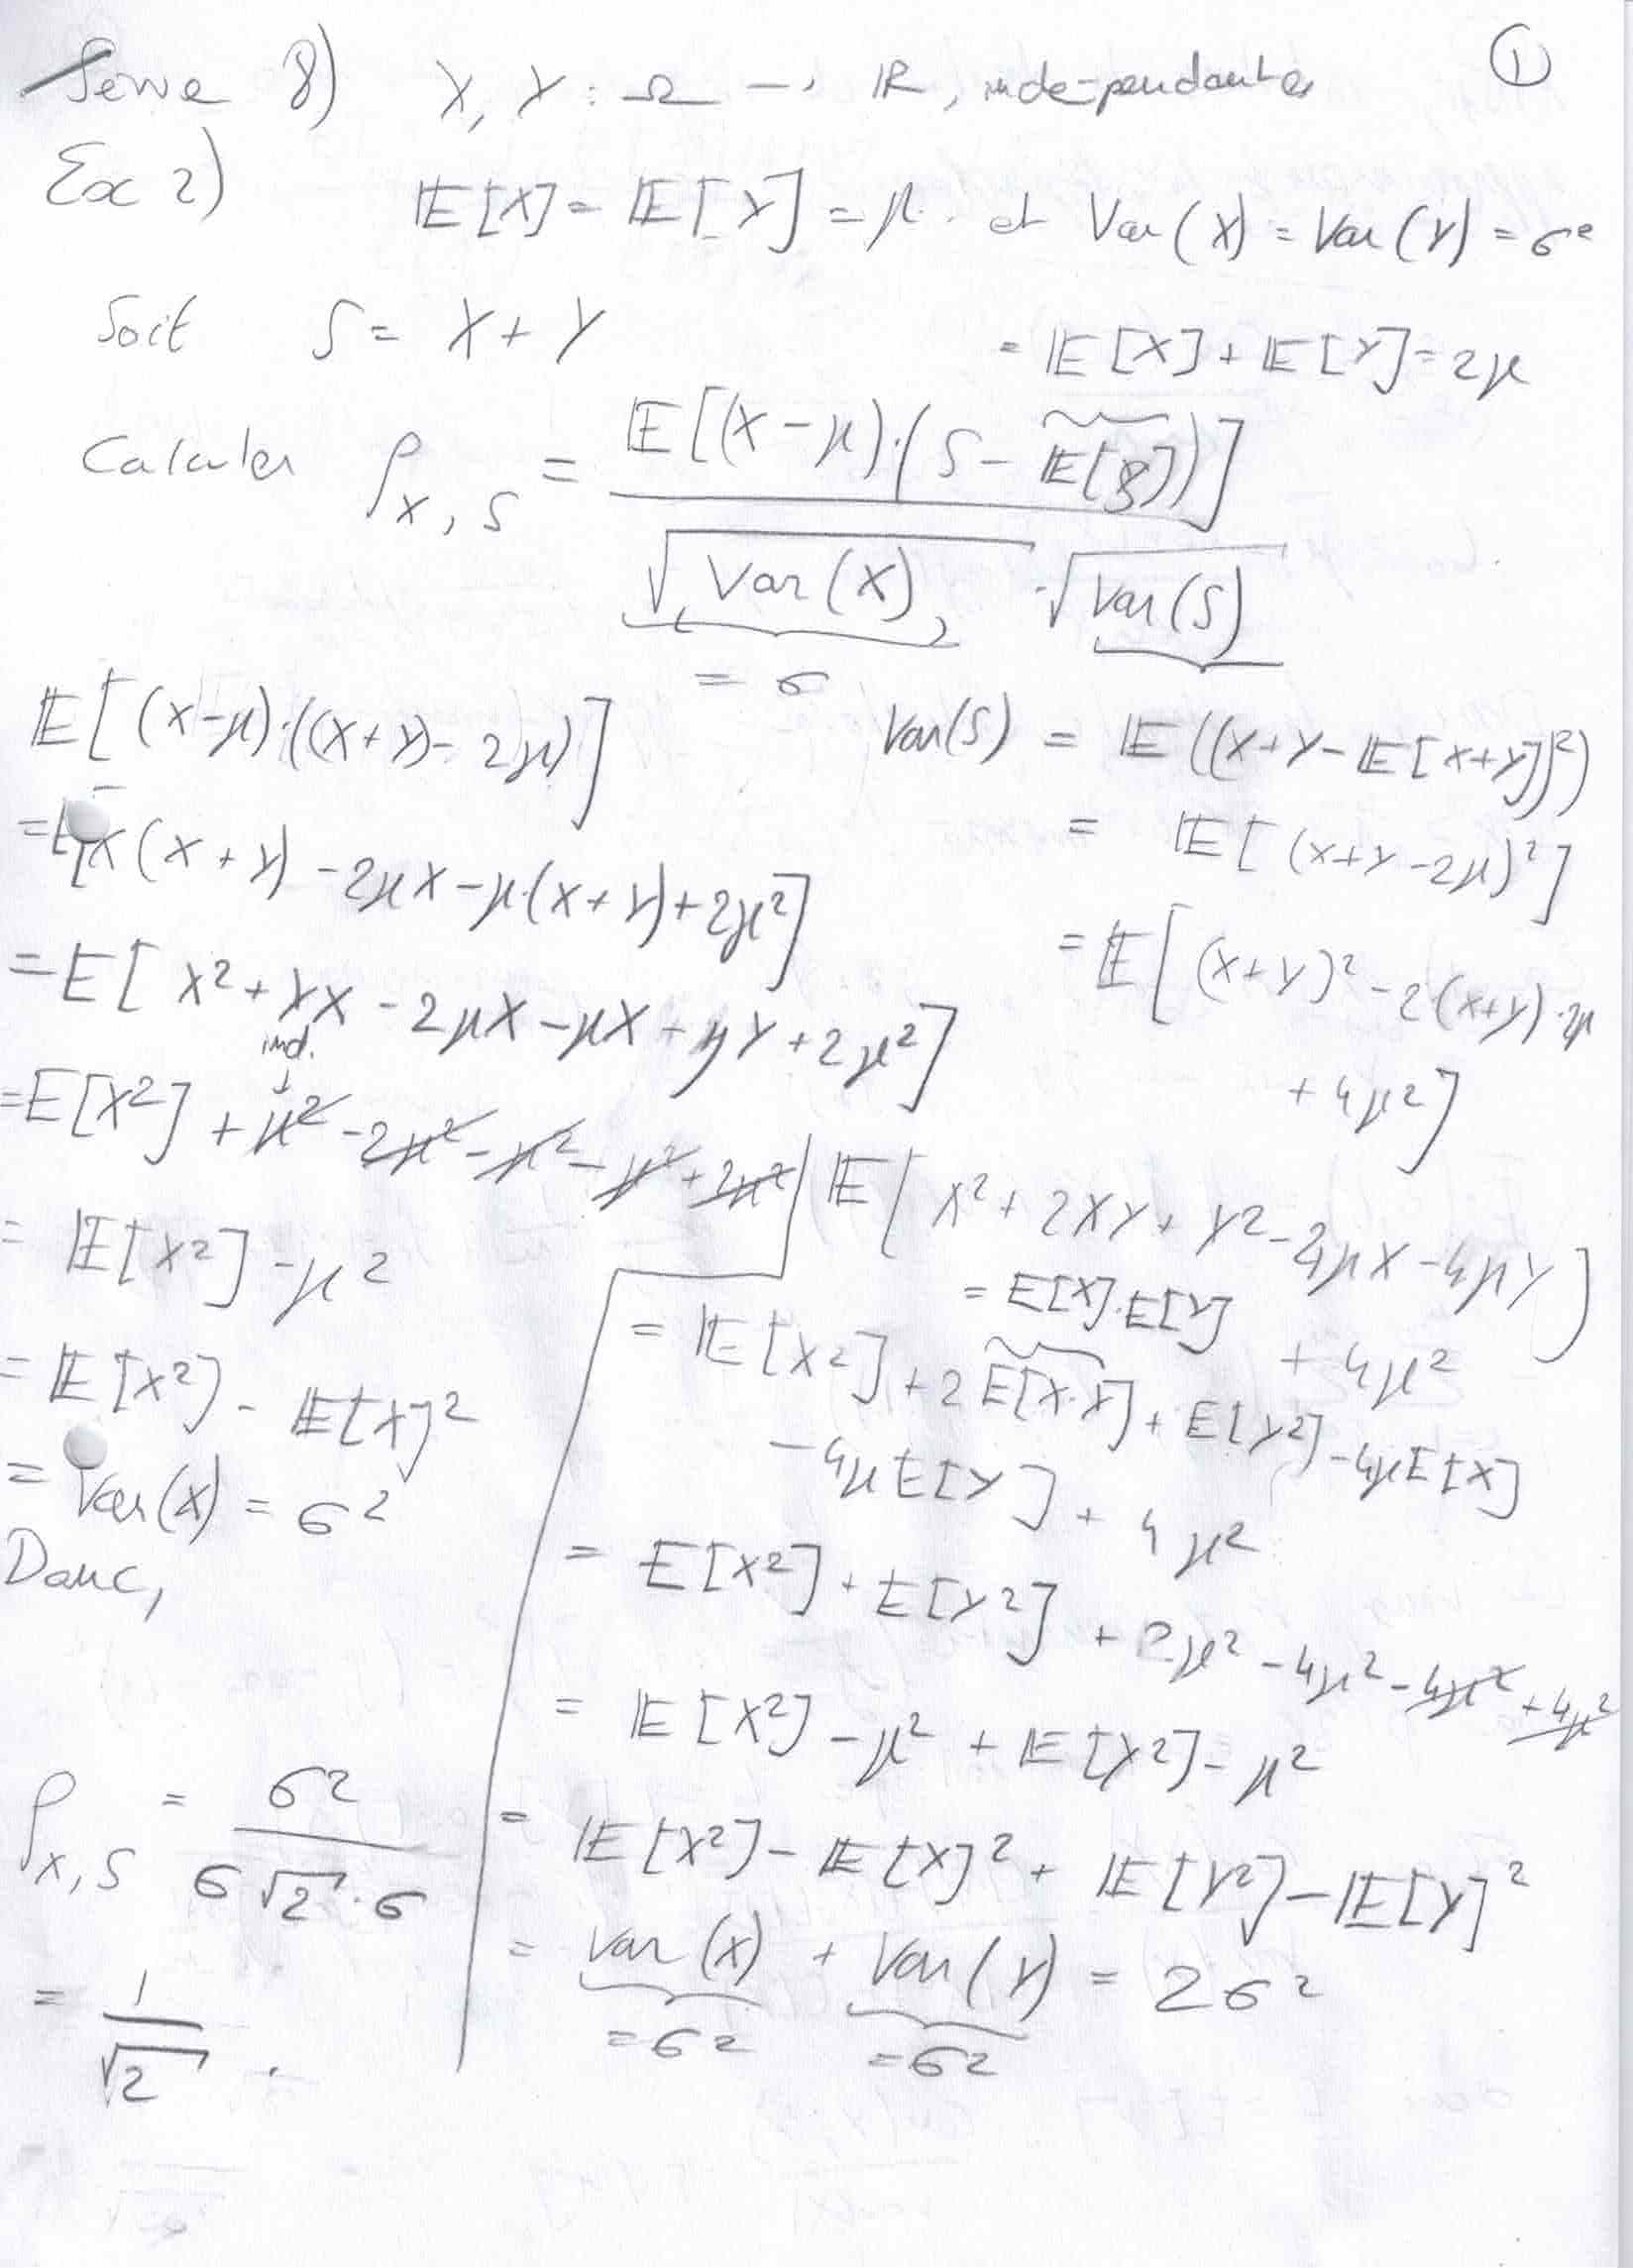 Série 8) X, Y : Ω → ℝ, indépendantes ①
Ex 2) 𝔼[X] = 𝔼[Y] = μ. et Var(X) = Var(Y) = σ²
Soit S = X + Y
= 𝔼[X] + 𝔼[Y] = 2μ
Calculer ρ_{X,S} = 𝔼[(X-μ)·(S - 𝔼[S])] / (√Var(X) · √Var(S))
= σ
𝔼[(X-μ)·((X+Y) - 2μ)]
= E[X(X+Y) - 2μX - μ·(X+Y) + 2μ²]
= E[X² + YX - 2μX - μX + μY + 2μ²]
ind.
↓
= E[X²] + μ² - 2μ² - μ² - μ² + 2μ²
= 𝔼[X²] - μ²
= 𝔼[X²] - 𝔼[X]²
= Var(X) = σ²
Donc,
ρ_{X,S} = σ² / (σ √2 · σ)
= 1 / √2 .
Var(S) = 𝔼((X+Y - 𝔼[X+Y])²)
= 𝔼[(X+Y - 2μ)²]
= 𝔼[(X+Y)² - 2(X+Y)·2μ
+ 4μ²]
𝔼[X² + 2XY + Y² - 4μX - 4μY
+ 4μ²]
= E[X]·E[Y]
= 𝔼[X²] + 2E[X·Y] + E[Y²] - 4μE[X]
- 4μE[Y] + 4μ²
= E[X²] + E[Y²] + 2μ² - 4μ² - 4μ² + 4μ²
= 𝔼[X²] - μ² + 𝔼[Y²] - μ²
= 𝔼[X²] - 𝔼[X]² + 𝔼[Y²] - 𝔼[Y]²
= Var(X) + Var(Y) = 2σ²
= σ² = σ²